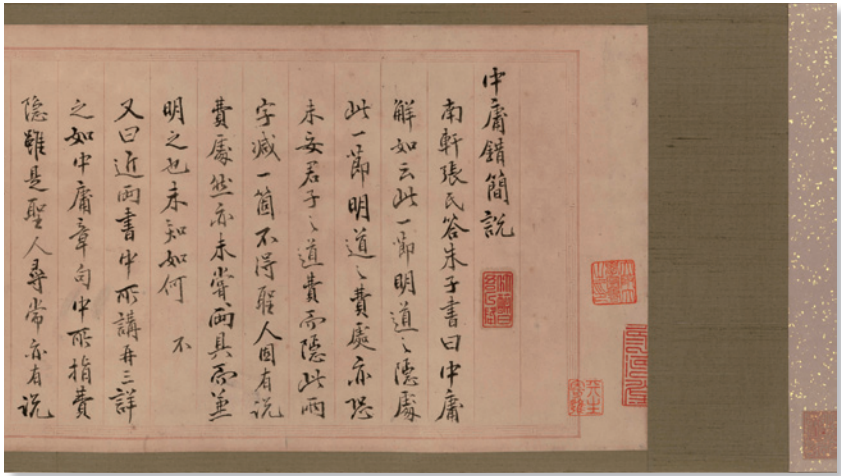 中庸錯簡說
南軒張氏答朱子書曰中庸
解如云此一節明道之隱處
此一節明道之費處亦恐
未妥君子之道費而隱此兩
字減一箇不得聖人固有說
費處然亦未嘗兩具而兼
明之也未知如何 不
又曰近兩書中所講再三詳
之如中庸章句中所指費
隱雖是聖人尋常亦有說